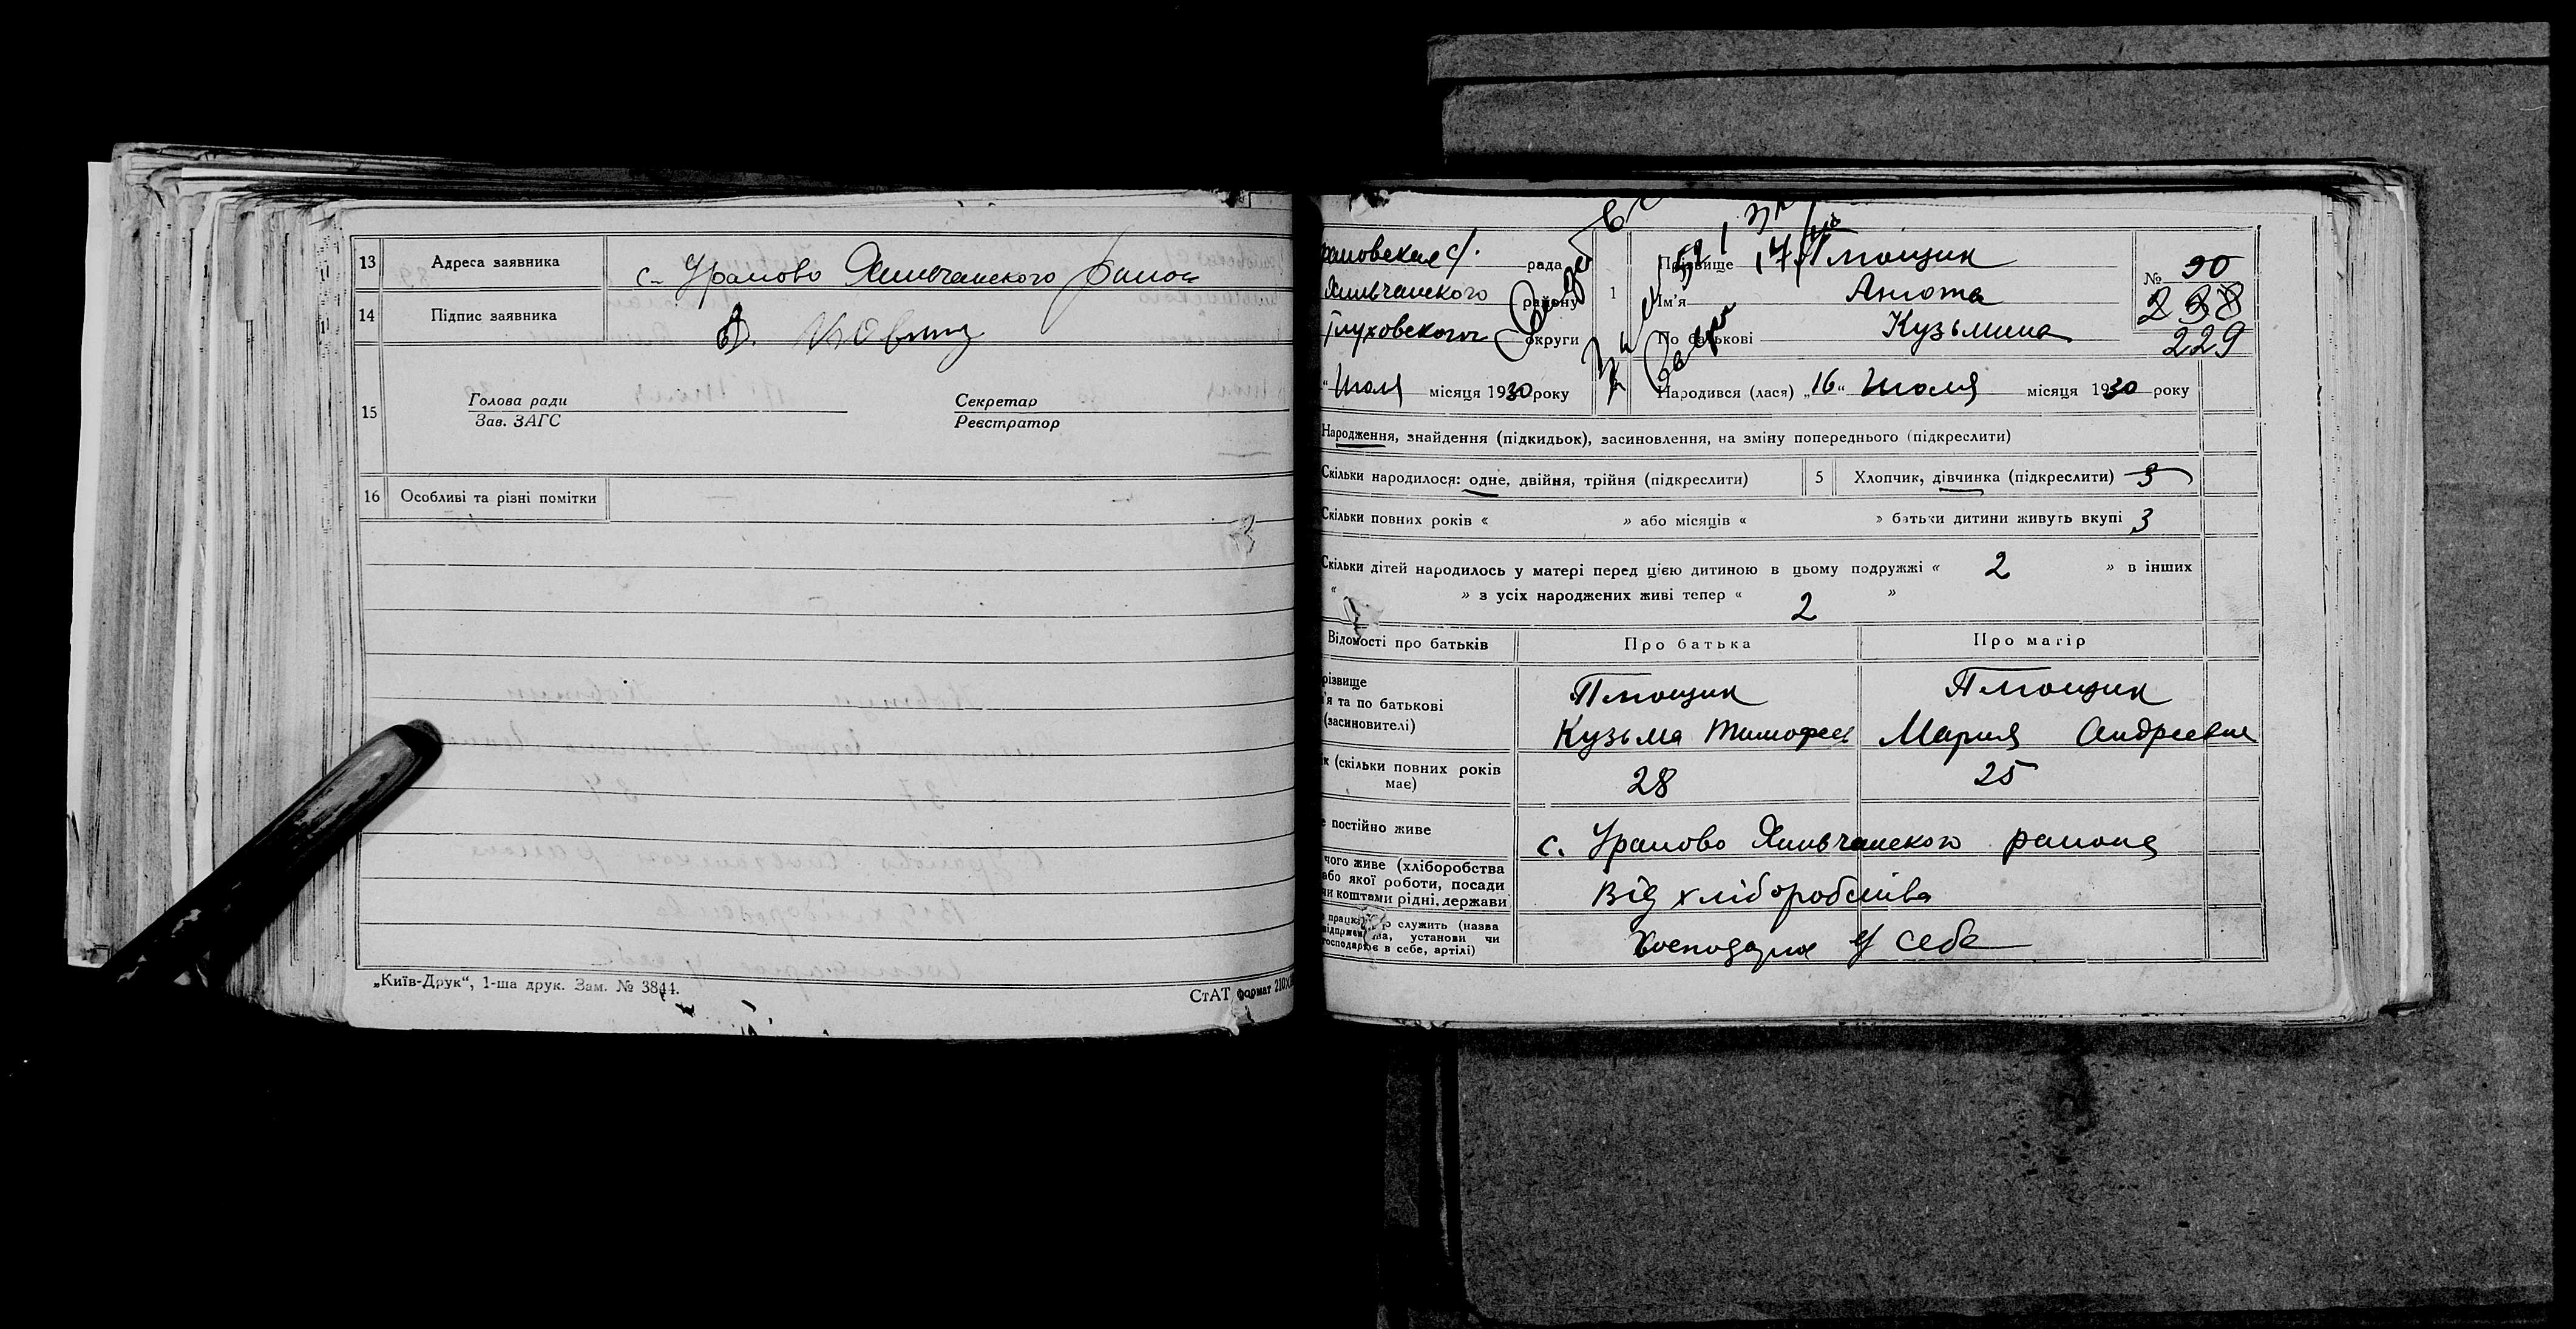 13 Адреса заявника с. Уралово Хильчанского район
14 Підпис заявника
15 Голова ради Секретар
Зав. ЗАГС Реєстратор
16 Особливі та різні помітки
„Київ-Друк“, 1-ша друк. Зам. № 3844.
СтАТ формат 210×
раловская с/. рада
Хильчанского району
Глуховского округи
“ Июля місяця 1930 року
1 Прізвище Плющик
Ім’я Анюта
По батькові Кузьмина
№ 90
238
229
Народився (лася) „16“ Июля місяця 1930 року
Народження, знайдення (підкидьок), засиновлення, на зміну попереднього (підкреслити)
Скільки народилося: одне, двійня, трійня (підкреслити) 5 Хлопчик, дівчинка (підкреслити) 3
Скільки повних років « » або місяців « » батьки дитини живуть вкупі 3
Скільки дітей народилось у матері перед цією дитиною в цьому подружжі « 2 » в інших
« » з усіх народжених живі тепер « 2 »
Відомості про батьків Про батька Про матір
різвище Плющик Плющик
’я та по батькові Кузьма Тимофее Мария Андреевна
(засиновителі)
ік (скільки повних років має) 28 25
е постійно живе с. Уралово Хильчанского района
чого живе (хліборобства
або якої роботи, посади
чи коштами рідні, держави Від хліборобства
служить (назва
установи чи
господарює в себе, артілі) Господарює у себе